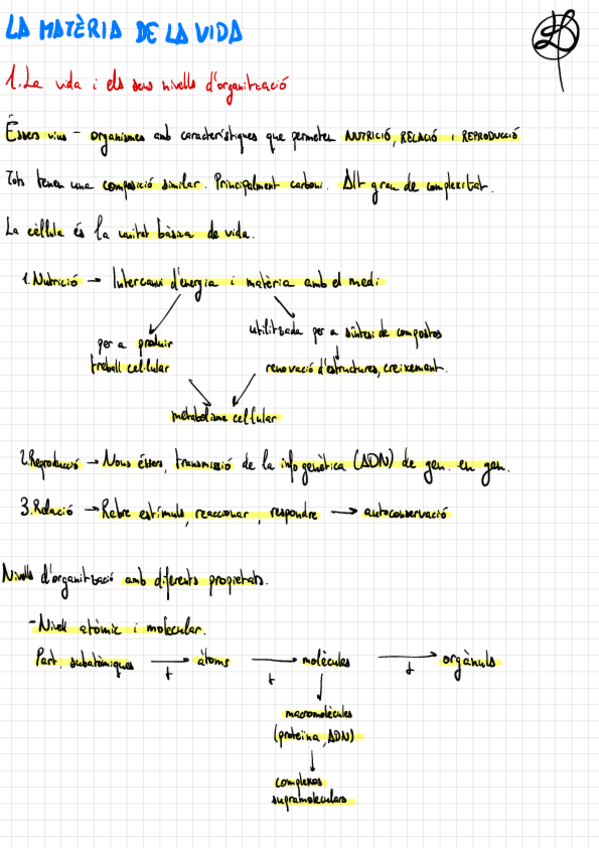 LA MATÈRIA DE LA VIDA
1. La vida i els seus nivells d'organització
Éssers vius - organismes amb característiques que permeten NUTRICIÓ, RELACIÓ i REPRODUCCIÓ
Tots tenen una composició similar. Principalment carboni. Alt grau de complexitat.
La cèl·lula és la unitat bàsica de vida.
1. Nutrició → Intercanvi d'energia i matèria amb el medi
per a produir
treball cel·lular
utilitzada per a síntesi de compostos
renovació d'estructures, creixement.
metabolisme cel·lular
2. Reproducció → Nous éssers, transmissió de la info genètica (ADN) de gen. en gen.
3. Relació → Rebre estímuls, reaccionar, respondre → autoconservació
Nivells d'organització amb diferents propietats.
- Nivell atòmic i molecular.
Part. subatòmiques → + àtoms → + molècules → + orgànuls
macromolècules
(proteïna, ADN)
complexos
supramoleculars